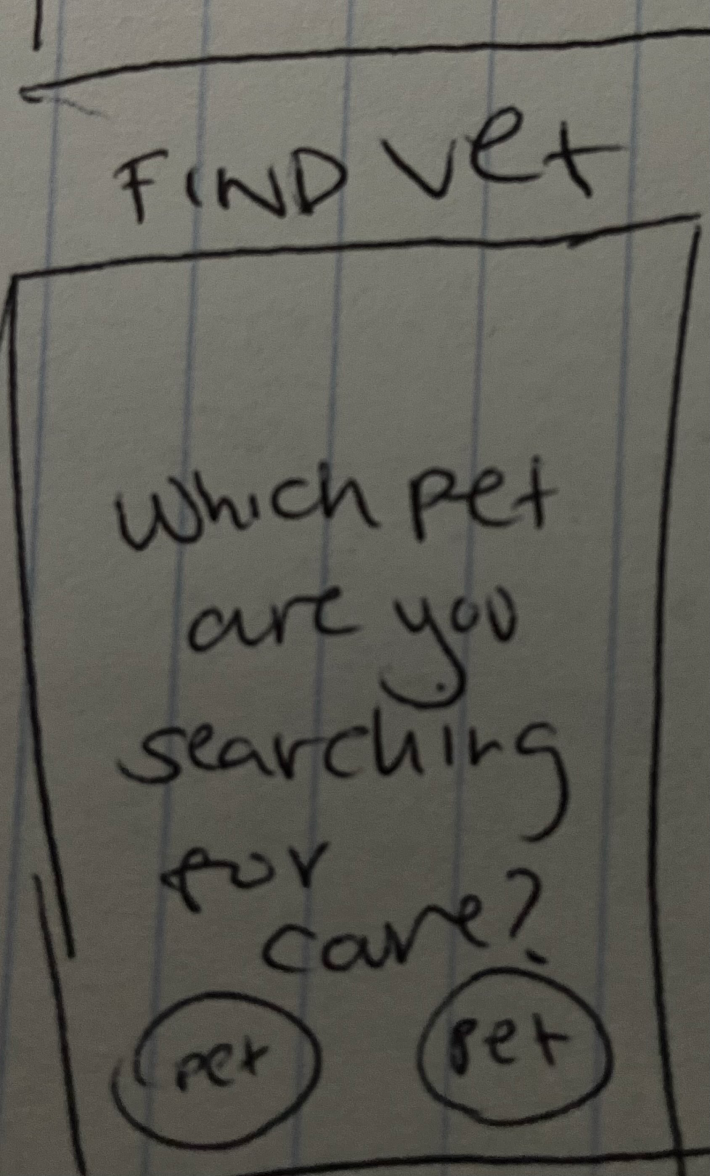 FIND vet
Which pet
are you
searching
for
care?
pet pet